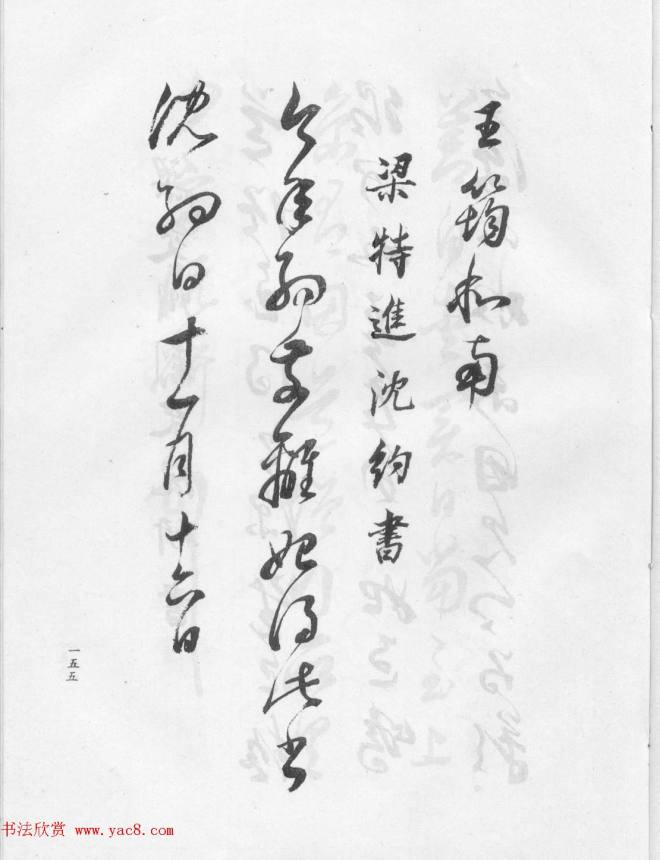 王筠和南
梁特進沈約書
今年約離始得此書
沈約白十一月十六日
一五五
书法欣赏 www.yac8.com